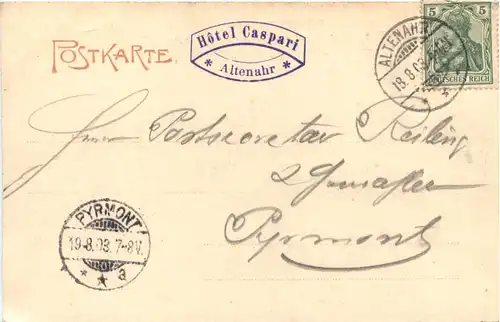 POSTKARTE.
Hôtel Caspari
* Altenahr *
ALTENAHR
18.8.03
5 5
DEUTSCHES REICH
Herrn Postsecretär Reiling
Pyrmont
PYRMONT
19.8.03.7-8V.
* * a